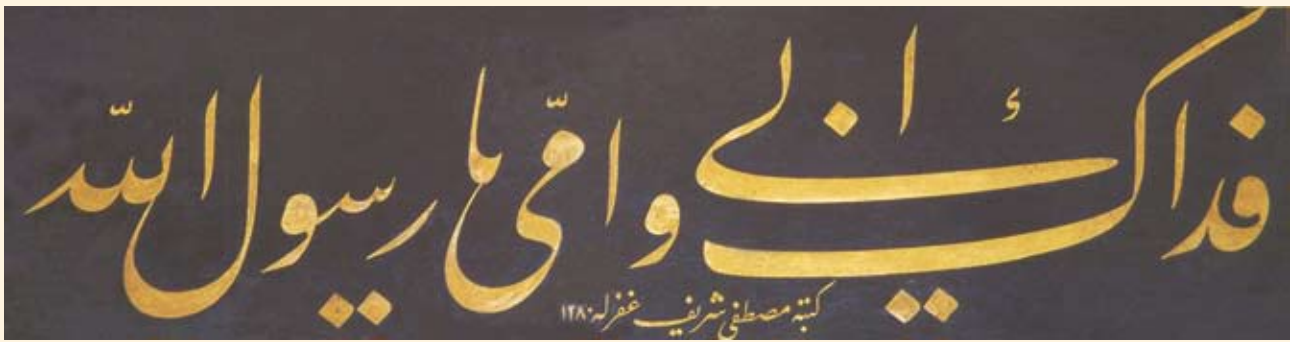 فداك ابي وامّي يا رسول الله
كتبه مصطفى شريف غفرله ١٢٨٠